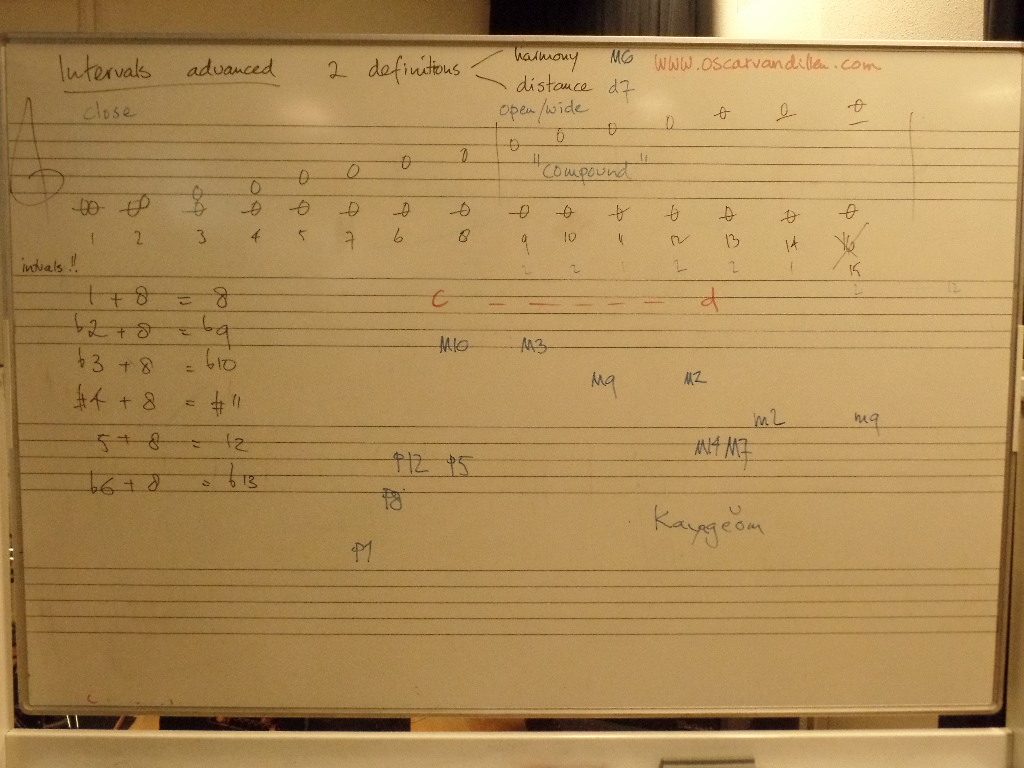 Intervals advanced 2 definitions harmony M6 www.oscarvandillen.com
distance d7
close open/wide
"compound"
1 2 3 4 5 7 6 8 9 10 11 12 13 14 16
2 2 1 2 2 1 15
2 12
1 + 8 = 8 c – – – – – d
b2 + 8 = b9 M10 M3
b3 + 8 = b10 M9 M2
#4 + 8 = #11 m2 m9
5 + 8 = 12 M14 M7
P12 P5
b6 + 8 = b13 P8
P1